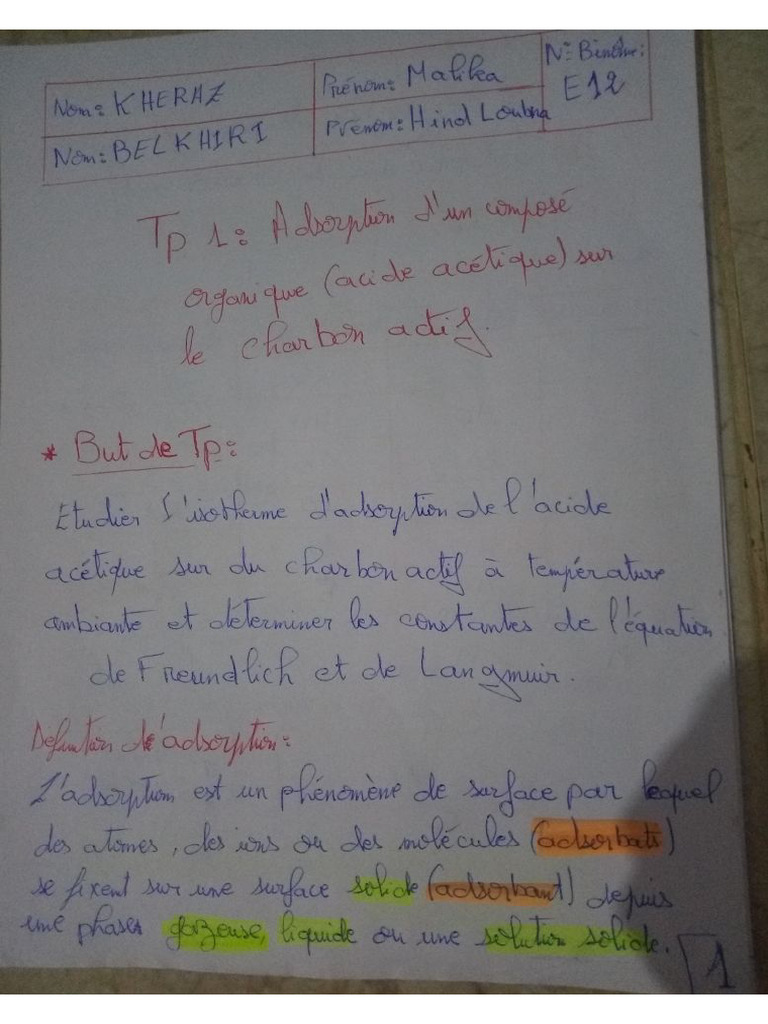 Nom: KHERAZ
Prénom: Malika
N° Binôme:
E12
Nom: BELKHIRI
Prénom: Hind Loubna
Tp 1: Adsorption d'un composé
organique (acide acétique) sur
le charbon actif.
* But de Tp:
Etudier l'isotherme d'adsorption de l'acide
acétique sur du charbon actif à température
ambiante et déterminer les constantes de l'équation
de Freundlich et de Langmuir.
Définition de l'adsorption:
L'adsorption est un phénomène de surface par lequel
des atomes, des ions ou des molécules (adsorbats)
se fixent sur une surface solide (adsorbant) depuis
une phases gazeuse, liquide ou une solution solide.
1